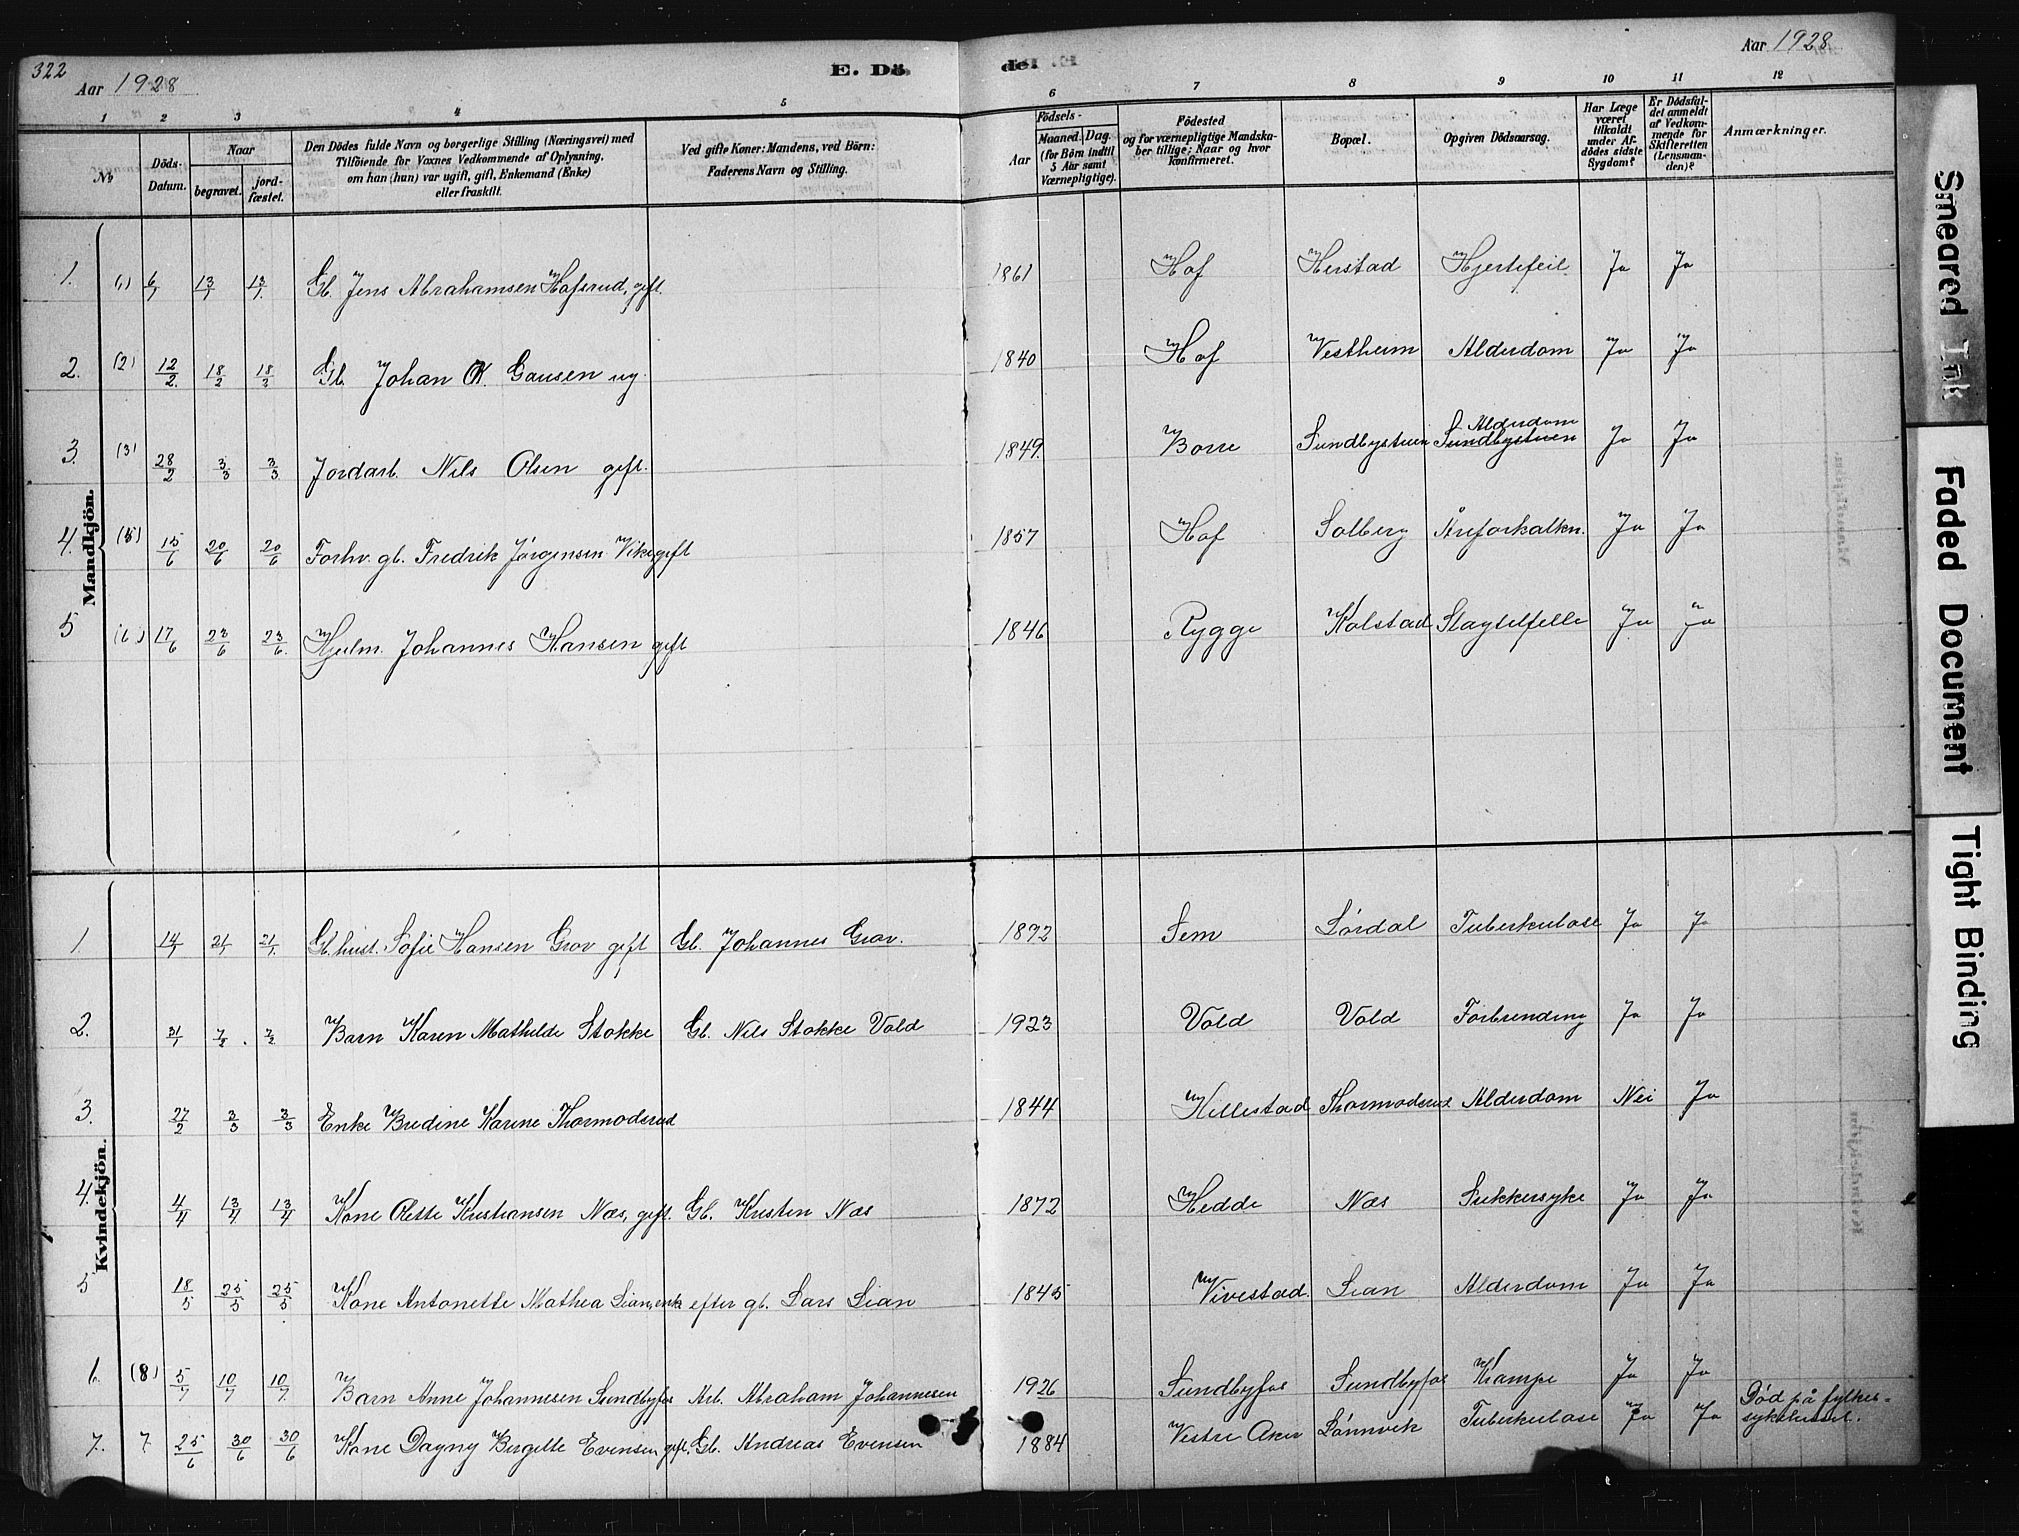 322
Aar 1928
E. Dö
de
Aar 1928
1 2 3 4 5 6 7 8 9 10 11 12
No
Döds-Datum.
Naar
begravet.
jord-fæstet.
Den Dödes fulde Navn og borgerlige Stilling (Næringsvei) med
Tilföiende for Voxnes Vedkommende af Oplysning,
om han (hun) var ugift, gift, Enkemand (Enke)
eller fraskilt.
Ved gifte Koner: Mandens, ved Börn:
Faderens Navn og Stilling.
Födsels-
Aar
Maaned. Dag.
(for Börn indtil
5 Aar samt
Værnepligtige).
Födested
og for værnepligtige Mandska-
ber tillige; Naar og hvor
konfirmeret.
Bopæl.
Opgiven Dödsaarsag.
Har Læge
været
tilkaldt
under Af-
dödes sidste
Sygdom?
Er Dödsfal-
det anmeldt
af Vedkom-
mende for
Skifteretten
(Lensman-
den)?
Anmærkninger.
Mandkjön.
1. (1) 6/1 13/1 13/1. Gb. Jens Abrahamsen Hofsrud, gift. 1861 Hof Herstad Hjertefeil Ja Ja
2. (2) 12/2 18/2 18/3 Gb. Johan Gausen ug. 1840 Hof Vestheim Alderdom Ja Ja
3. (3) 28/2 3/3 3/3 Jordarb. Nils Olsen gift. 1849. Borre Sundbystuen Sundbystuen Alderdom Ja Ja
4. (5) 15/6 20/6 20/6 Forhv. gb. Fredrik Jørgensen Vike gift 1857 Hof Solberg Åreforkalkn. Ja Ja
5 (6) 17/6 23/6 23/6. Hjulm. Johannes Hansen gift 1846 Rygge Kolstad Slagtilfelle Ja Ja
Kvindekjön.
1. 14/1 21/1 21/1. Gb. hust. Sofie Hansen Grov gift Gb. Johannes Grov. 1892 Sem Sørdal Tuberkulose Ja Ja
2. 31/1 7/2 7/2 Barn Karen Mathilde Stokke Gb. Nils Stokke Vold 1923 Vold Vold Forbrending Ja Ja
3. 27/2 3/3 3/3 Enke Bredine Karine Thormodsrud 1844 Hillestad Thormodsrud Alderdom Nei Ja
4. 4/4 13/4 13/4 Kone Olette Kristiansen Næs, gift. Gb. Kristen Næs 1872 Hedde Næs Sukkersyke Ja Ja
5 18/5 25/5 25/5 Kone Antonette Mathea Lian, enk efter gb. Lars Lian 1845 Vivestad. Lian Alderdom Ja Ja
6. (8) 5/7 10/7 10/7. Barn Anne Johannesen Sundbyfos Arb. Abraham Johannesen 1926 Sundbyfos Sundbyfos Krampe Ja Ja
7. 7 25/6 30/6 30/6 Kone Dagny Birgitte Evensen gift. Gb. Andreas Evensen 1884 Vestre Aker Lønnvik Tuberkulose Ja Ja Død på fylkes-
sykehuset.
Smeared Ink
Faded Document
Tight Binding